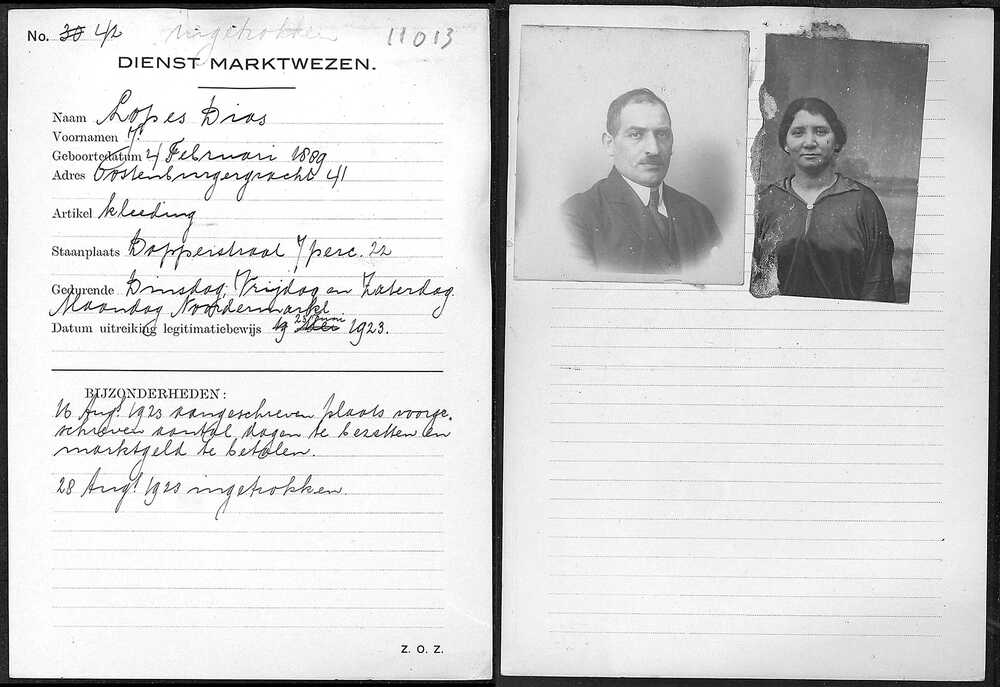 No. 30 42 ingetrokken 11013
DIENST MARKTWEZEN.
Naam Lopes Dias
Voornamen J.
Geboortedatum 4 Februari 1889
Adres Oostenburgergracht 41
Artikel kleeding
Staanplaats Dapperstraat 7 perc. 22
Gedurende Dinsdag, Vrijdag en Zaterdag.
Maandag Noordermarkt
23 Juni
Datum uitreiking legitimatiebewijs 19 Mei 1923.
BIJZONDERHEDEN:
16 Aug! 1923 aangeschreven plaats voorge-
schreven aantal dagen te bezetten en
marktgeld te betalen.
28 Aug! 1923 ingetrokken.
Z. O. Z.